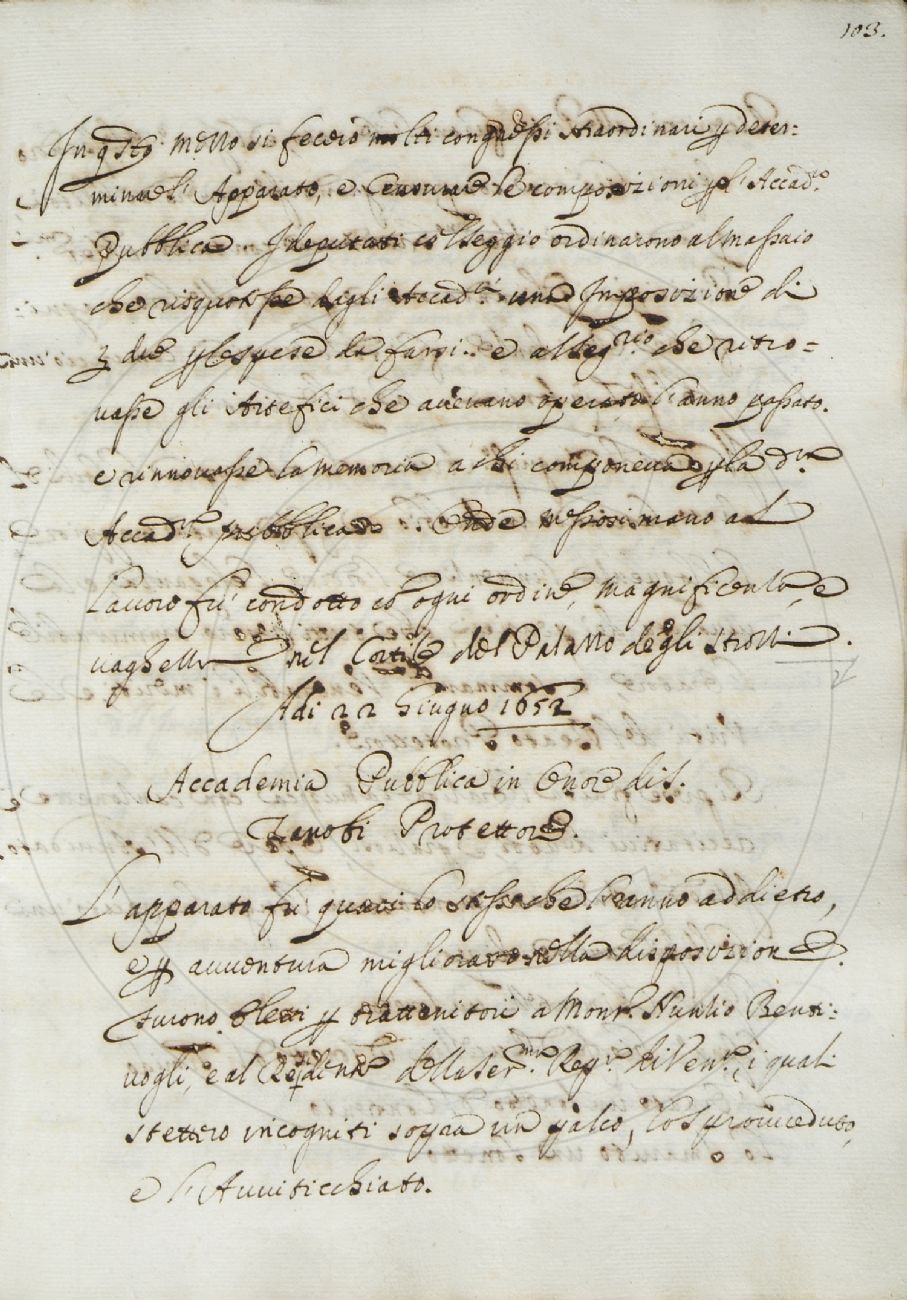 103.
In q.sto mezzo si fecero molti congressi straordinari p deter=
minar l' Apparato, e Censurare le composizioni p l' Accad.a
Pubblica. I deputati col seggio ordinarono al massaio
che riscuotesse dagli Accad.ci una Imposizione di
due p le spese da farsi.. e al seg.rio che ritro=
vasse gli Artefici che avevano operato l'anno passato.
e rinnovasse la memoria a chi componeva p la d.a
Accad.a pubblica. Onde messosi mano al
lavoro fu' condotto co ogni ordine, magnificenza, e
vaghezza nel Cortile del Palazzo degli Strozzi.
Adi 22 Giugno 1652
Accademia Pubblica in Onore di S.
Zanobi Protettore.
L'apparato fu quasi lo stesso che l'anno addietro,
e p avventura migliorato nella disposizione.
furono eletti p trattenitori a Mons.r Nunzio Benti=
vogli, e al Residente della Ser.ma Rep.ca di Ven.a, i quali
stettero incogniti sopra un palco, lo Sprovveduto,
e l'Avviticchiato.